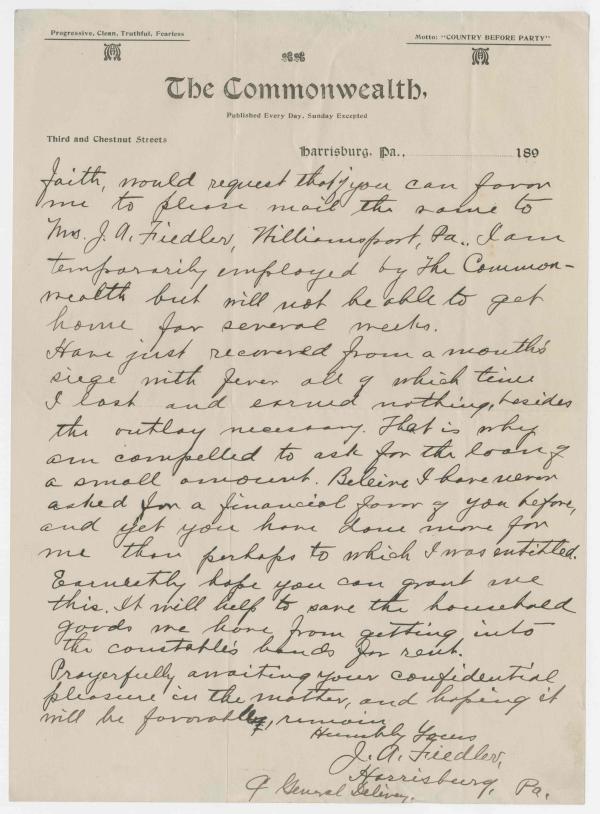 Progressive, Clean, Truthful, Fearless
Motto: "COUNTRY BEFORE PARTY"
The Commonwealth,
Published Every Day, Sunday Excepted
Third and Chestnut Streets
Harrisburg, Pa., 189
faith, would request that if you can favor
me to please mail the same to
Mrs. J. A. Fiedler, Williamsport, Pa., I am
temporarily employed by The Common-
wealth but will not be able to get
home for several weeks.
Have just recovered from a month's
siege with fever all of which time
I lost and earned nothing, besides
the outlay necessary. That is why
am compelled to ask for the loan of
a small amount. Beleive I have never
asked for a financial favor of you before,
and yet you have done more for
me than perhaps to which I was entitled.
Earnestly hope you can grant me
this. It will help to save the household
goods we have from getting into
the constable's hands for rent.
Prayerfully awaiting your confidential
pleasure in the matter, and hoping it
will be favorably, remain
Humbly Yours
J. A. Fiedler,
Harrisburg, Pa.
General Delivery.